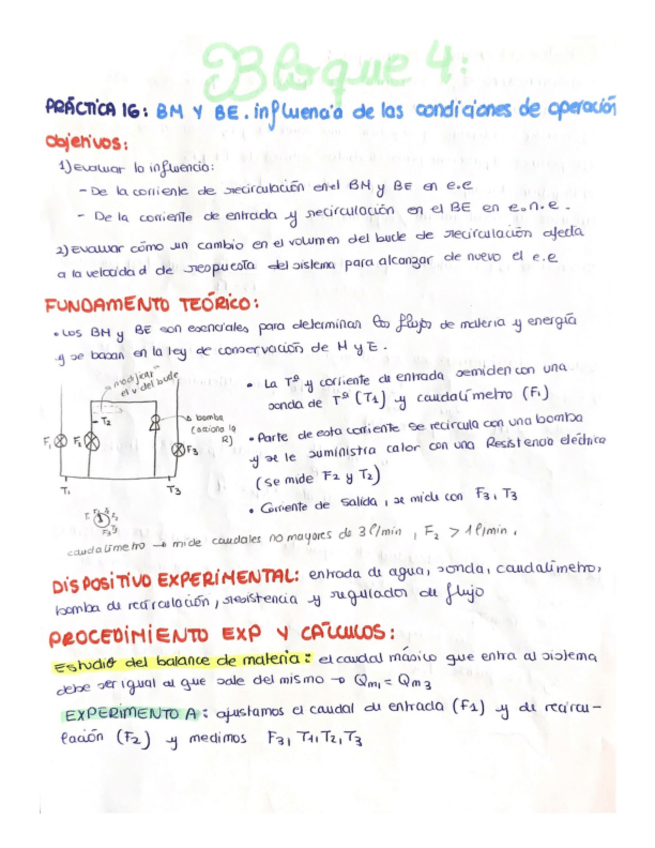 Bloque 4:
PRÁCTICA 16: BM Y BE. influencia de las condiciones de operación
Objetivos:
1) Evaluar la influencia:
- De la corriente de recirculación en el BM y BE en e.e
- De la corriente de entrada y recirculación en el BE en e.n.e.
2) Evaluar cómo un cambio en el volumen del bucle de recirculación afecta
a la velocidad de respuesta del sistema para alcanzar de nuevo el e.e
FUNDAMENTO TEÓRICO:
• Los BM y BE son esenciales para determinar los flujos de materia y energía
y se basan en la ley de conservación de M y E.
modificar
el v del bucle
T2
bomba
(acciona la
R)
F1
F2
F3
T1
T3
• La Tª y corriente de entrada se miden con una
sonda de Tª (T1) y caudalímetro (F1)
• Parte de esta corriente se recircula con una bomba
y se le suministra calor con una Resistencia eléctrica
(se mide F2 y T2)
• Corriente de salida, se mide con F3, T3
caudalímetro → mide caudales no mayores de 3 l/min, F2 > 1 l/min.
DISPOSITIVO EXPERIMENTAL: entrada de agua, sonda, caudalímetro,
bomba de recirculación, resistencia y regulador de flujo
PROCEDIMIENTO EXP Y CÁLCULOS:
Estudio del balance de materia: el caudal másico que entra al sistema
debe ser igual al que sale del mismo → Qm1 = Qm3
EXPERIMENTO A: ajustamos el caudal de entrada (F1) y de recircu-
lación (F2) y medimos F3, T1, T2, T3